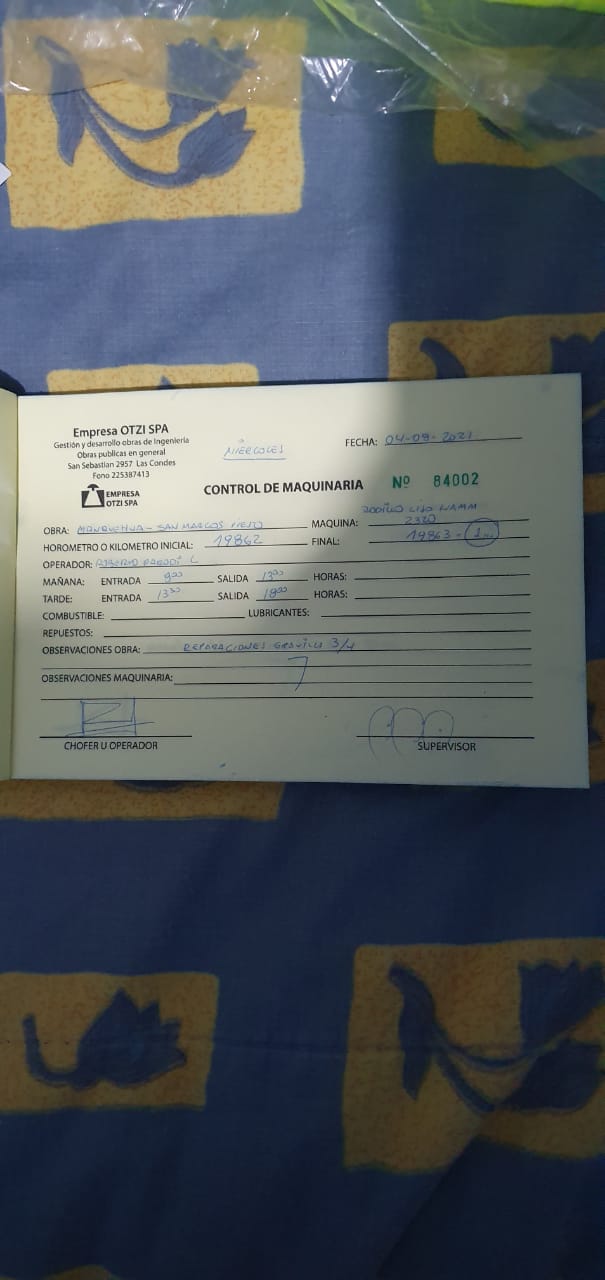 Empresa OTZI SPA
Gestión y desarrollo obras de Ingenieria
Obras publicas en general
San Sebastian 2957 Las Condes
Fono 225387413
EMPRESA
OTZI SPA
MIERCOLES
FECHA: 04-08-2021
CONTROL DE MAQUINARIA
Nº 84002
OBRA: MANQUEHUA - SAN MARCOS VIEJO
MAQUINA: RODILLO LISO HAMM
2320
HOROMETRO O KILOMETRO INICIAL: 19862 FINAL: 19863 - 1
OPERADOR: ROBERTO
MAÑANA: ENTRADA 8:00 SALIDA 13:00 HORAS:
TARDE: ENTRADA 13:30 SALIDA 18:00 HORAS:
COMBUSTIBLE: LUBRICANTES:
REPUESTOS:
OBSERVACIONES OBRA: REPARACIONES GRAVILLA 3/4
OBSERVACIONES MAQUINARIA:
CHOFER U OPERADOR
SUPERVISOR